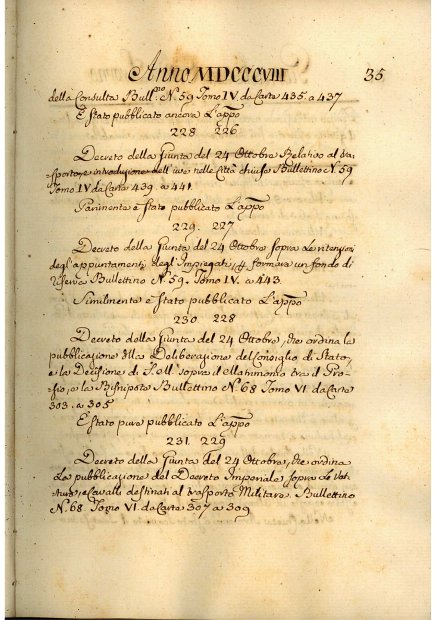 Anno MDCCCVIII 35
della Consulta Bull.no N. 59 Tomo IV da Carte 435. a 437
E stato pubblicato ancora L'appo
228 226
Decreto della Giunta del 24 Ottobre Relativo al tra-
sporto, e introduzione dell'uve nelle Città chiuse Bullettino N. 59
Tomo IV da Carte 439. a 441.
Parimente è stato pubblicato L'appo
229. 227.
Decreto della Giunta del 24 Ottobre sopra le ritenzioni
degl'appuntamenti degl'Impiegati, p. formare un fondo di
riserva Bullettino N. 59. Tomo IV. a 443.
Similmente è stato pubblicato L'appo
230. 228
Decreto della Giunta del 24 Ottobre, che ordina la
pubblicazione della Deliberazione del Consiglio di Stato,
e la Decisione di S. e R. sopra il Matrimonio tra il Pro-
zio, e la Bisnipote Bullettino N. 68 Tomo VI. da Carte
303. a 305
E stato pure pubblicato L'appo
231. 229
Decreto della Giunta del 24 Ottobre, che ordina
La pubblicazione del Decreto Imperiale sopra Le Vet-
ture, e Cavalli destinati al trasporto Militare. Bullettino
N. 68. Tomo VI. da Carte 307 a 309